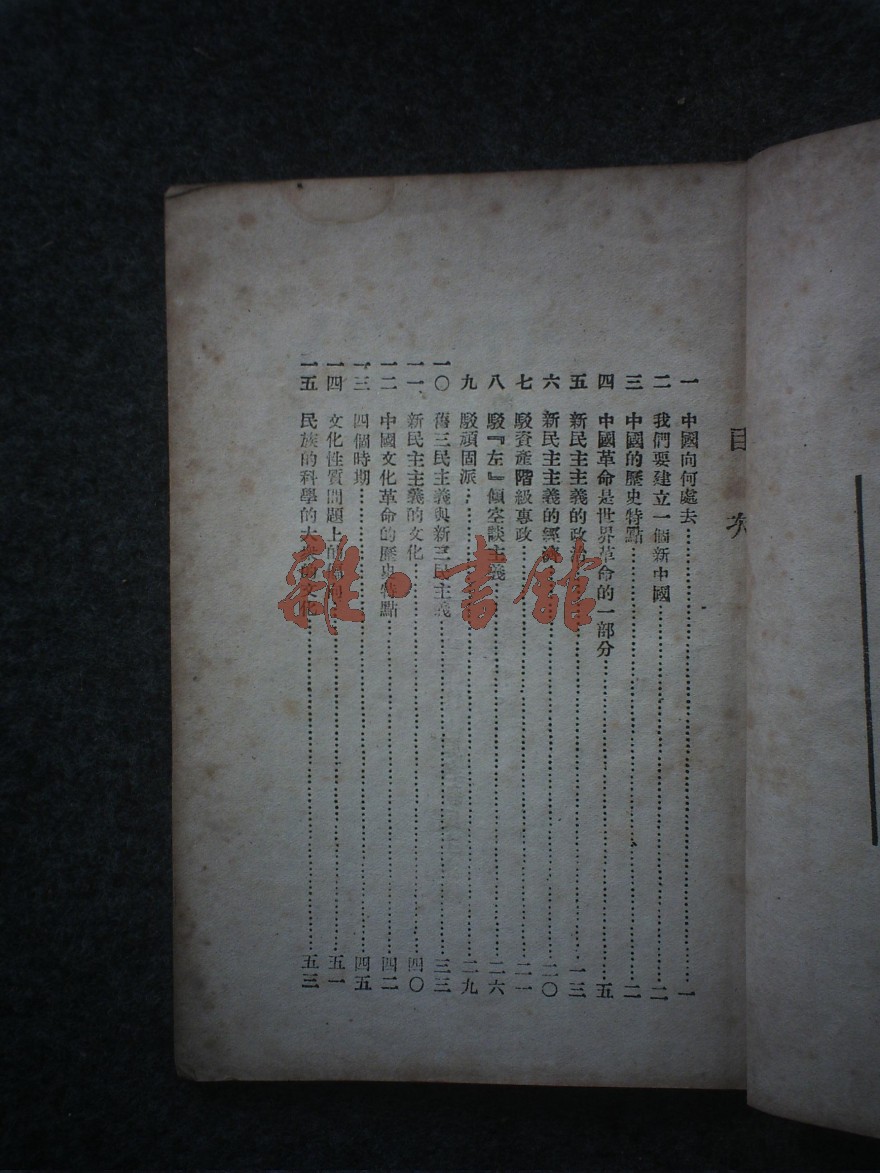 目次
一 中國向何處去……一
二 我們要建立一個新中國……二
三 中國的歷史特點……二
四 中國革命是世界革命的一部分……五
五 新民主主義的政治……一三
六 新民主主義的經濟……二〇
七 駁資產階級專政……二一
八 駁『左』傾空談主義……二六
九 駁頑固派……二九
一〇 舊三民主義與新三民主義……三三
一一 新民主主義的文化……四〇
一二 中國文化革命的歷史特點……四二
一三 四個時期……四五
一四 文化性質問題上的……五一
一五 民族的科學的大衆的文化……五三
雜·書館